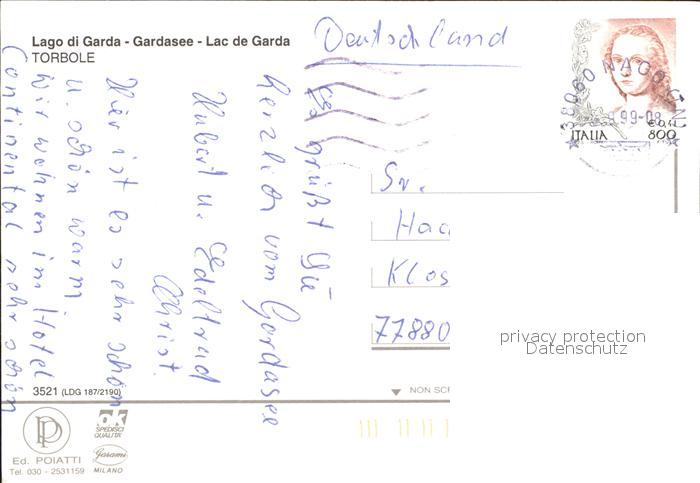 Lago di Garda - Gardasee - Lac de Garda
TORBOLE
Deutschland
Es grüßt Sie
herzlich vom Gardasee
Hubert u. Edeltrud
Christ.
Hier ist es sehr schön
u. schön warm,
wir wohnen im Hotel
Continental sehr schön
38060 NAGO
.99-08
€ 0,41
ITALIA 800
Sr.
Haa
Klos
77880
privacy protection
Datenschutz
3521 (LDG 187/2190)
NON SCR
ok
SPEDISCI
QUALITA'
Garami
MILANO
PP
Ed. POIATTI
Tel. 030 - 2531159